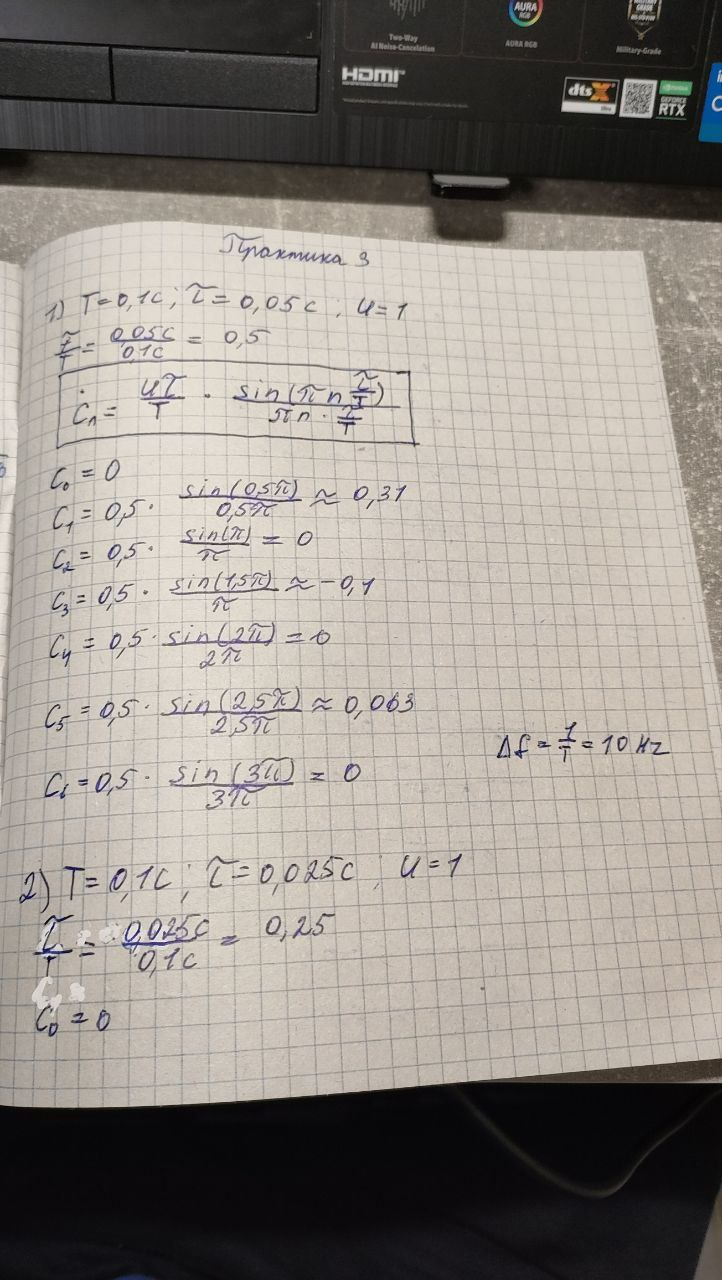 Two-Way
AI Noise-Cancelation
AURA
RGB
AURA RGB
Military-Grade
HDMI
dtsX
Ultra
NVIDIA
GEFORCE
RTX
Практика 3
1) T=0,1с; τ=0,05с; u=1
τ/T = 0,05с/0,1с = 0,5
Ċn = uτ/T · sin(πn τ/T)/(πn · τ/T)
C0 = 0
C1 = 0,5 · sin(0,5π)/0,5π ≈ 0,31
C2 = 0,5 · sin(π)/π = 0
C3 = 0,5 · sin(1,5π)/π ≈ -0,1
C4 = 0,5 · sin(2π)/2π = 0
C5 = 0,5 · sin(2,5π)/2,5π ≈ 0,063
Δf = 1/T = 10 Hz
C6 = 0,5 · sin(3π)/3π = 0
2) T=0,1с; τ=0,025с; u=1
τ/T = 0,025с/0,1с = 0,25
C0 = 0